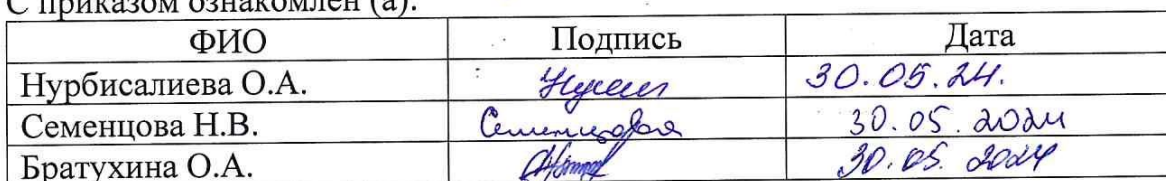 С приказом ознакомлен (а):
ФИО Подпись Дата
Нурбисалиева О.А. 30.05.24.
Семенцова Н.В. Семенцова 30.05.2024
Братухина О.А. 30.05.2024